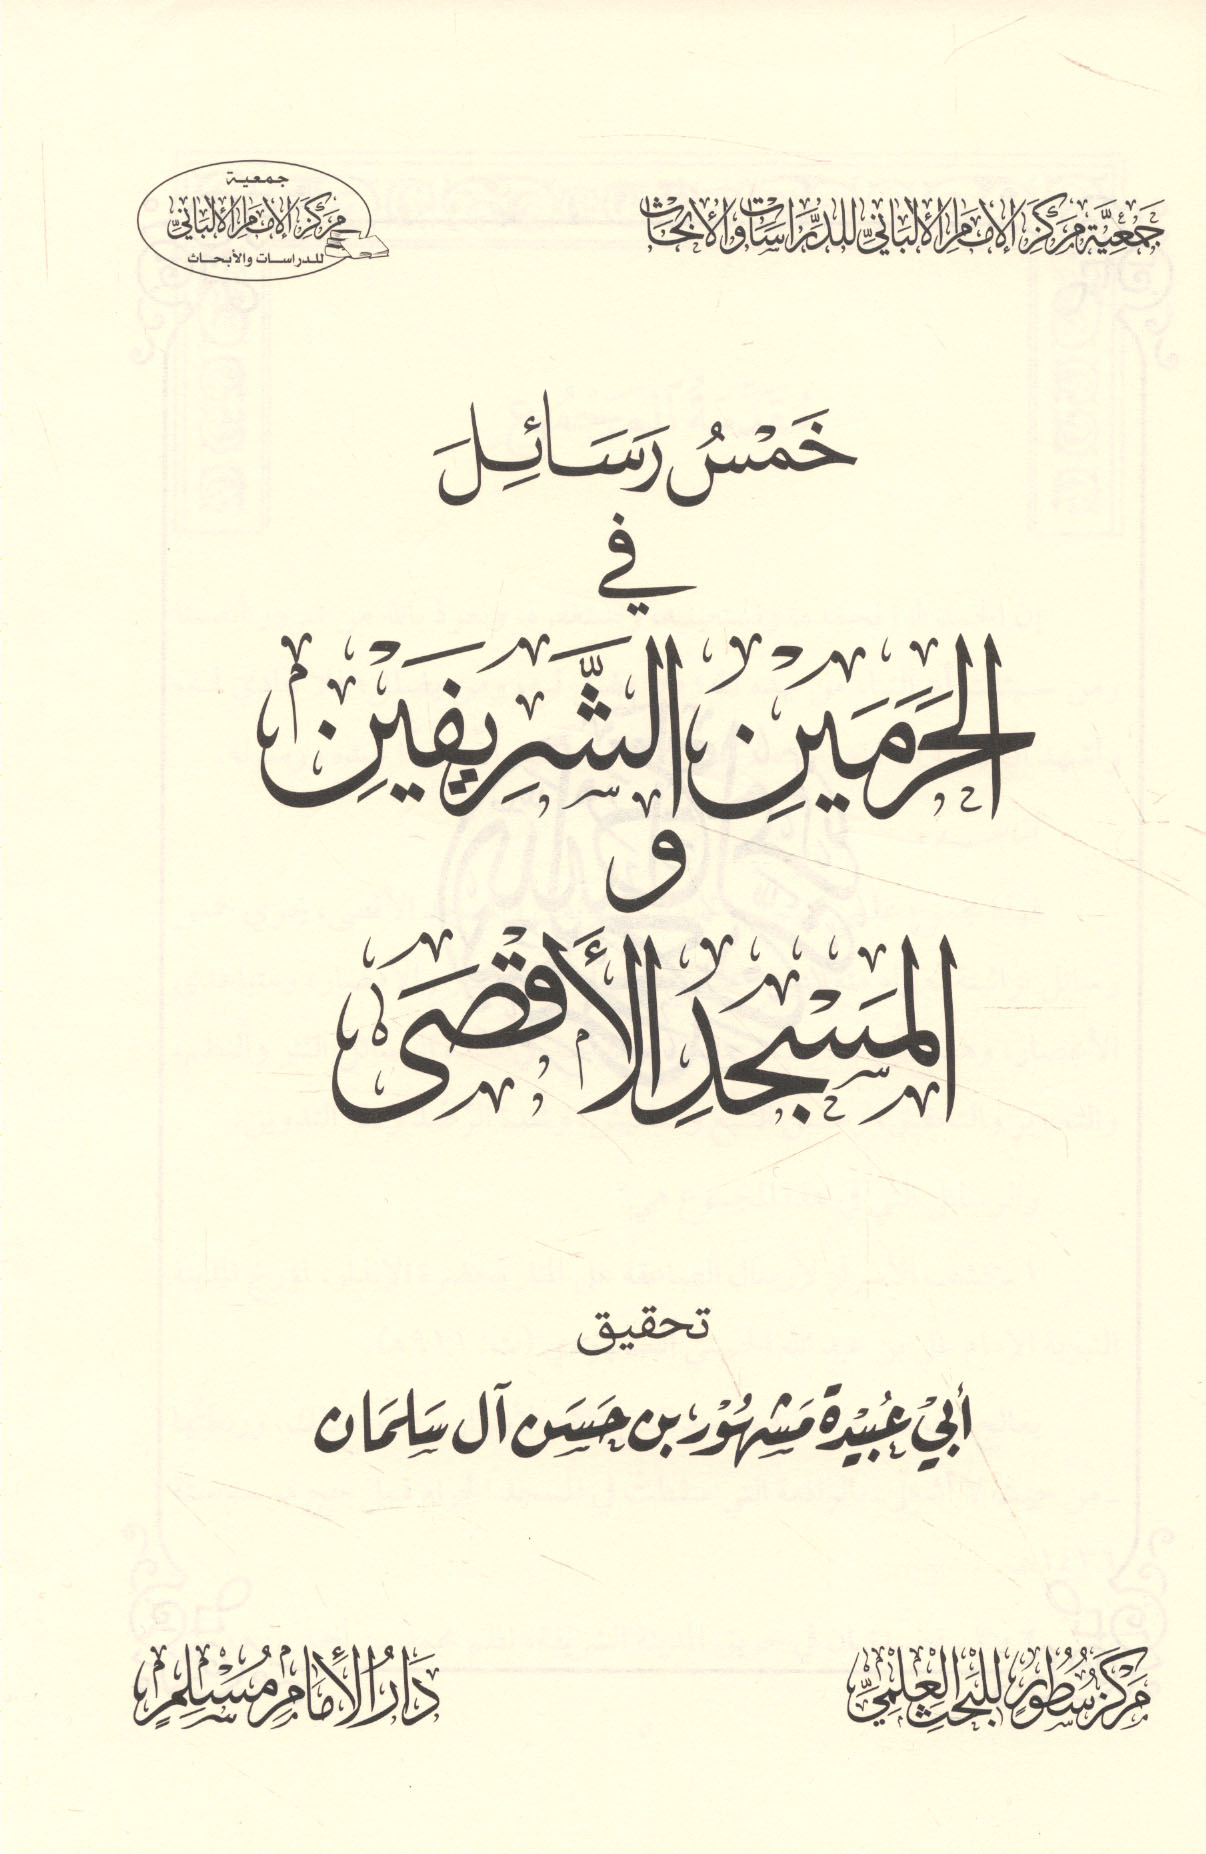 جَمْعِيَّة مَرْكَزِ الإِمَامِ الأَلْبَانِيِّ لِلدِّرَاسَاتِ وَالأَبْحَاثِ
جمعية
مركز الإمام الألباني
للدراسات والأبحاث
خَمْسُ رَسَائِلَ
في
الحَرَمَيْنِ الشَّرِيفَيْنِ
و
المَسْجِدِ الأَقْصَى
تحقيق
أبي عُبَيْدة مَشْهُوْر بن حَسَن آل سَلمَان
مَرْكَزُ سُطُورٍ لِلْبَحْثِ الْعِلْمِيِّ
دَارُ الإِمَامِ مُسْلِمٍ